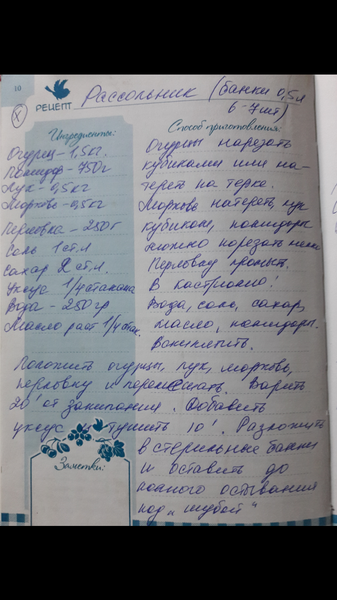 10
РЕЦЕПТ Рассольник (банки 0,5л
6-7шт)
Ингредиенты:
Огурц - 1,5кг.
Помидор - 750г
Лук - 0,5кг
Морковь - 0,5кг
Перловка - 250г
Соль 1 ст.л
Сахар 2 ст.л.
Уксус 1/4 стакана
Вода - 250гр
Масло раст 1/4 стак.
Способ приготовления:
Огурцы нарезать
кубиками или на-
тереть на терке.
Морковь натереть, лук
кубиком, помидоры
можно нарезать
Перловку промыт.
В кастрюлю:
Вода, соль, сахар,
масло, помидоры.
Вскипятить.
Положить огурцы, лук, морковь,
перловку и перемешать. Варить
20' от закипания. Добавить
уксус и тушить 10'. Разложить
в стерильные банки
и оставить до
полного остывания
под „шубой“
Заметки: